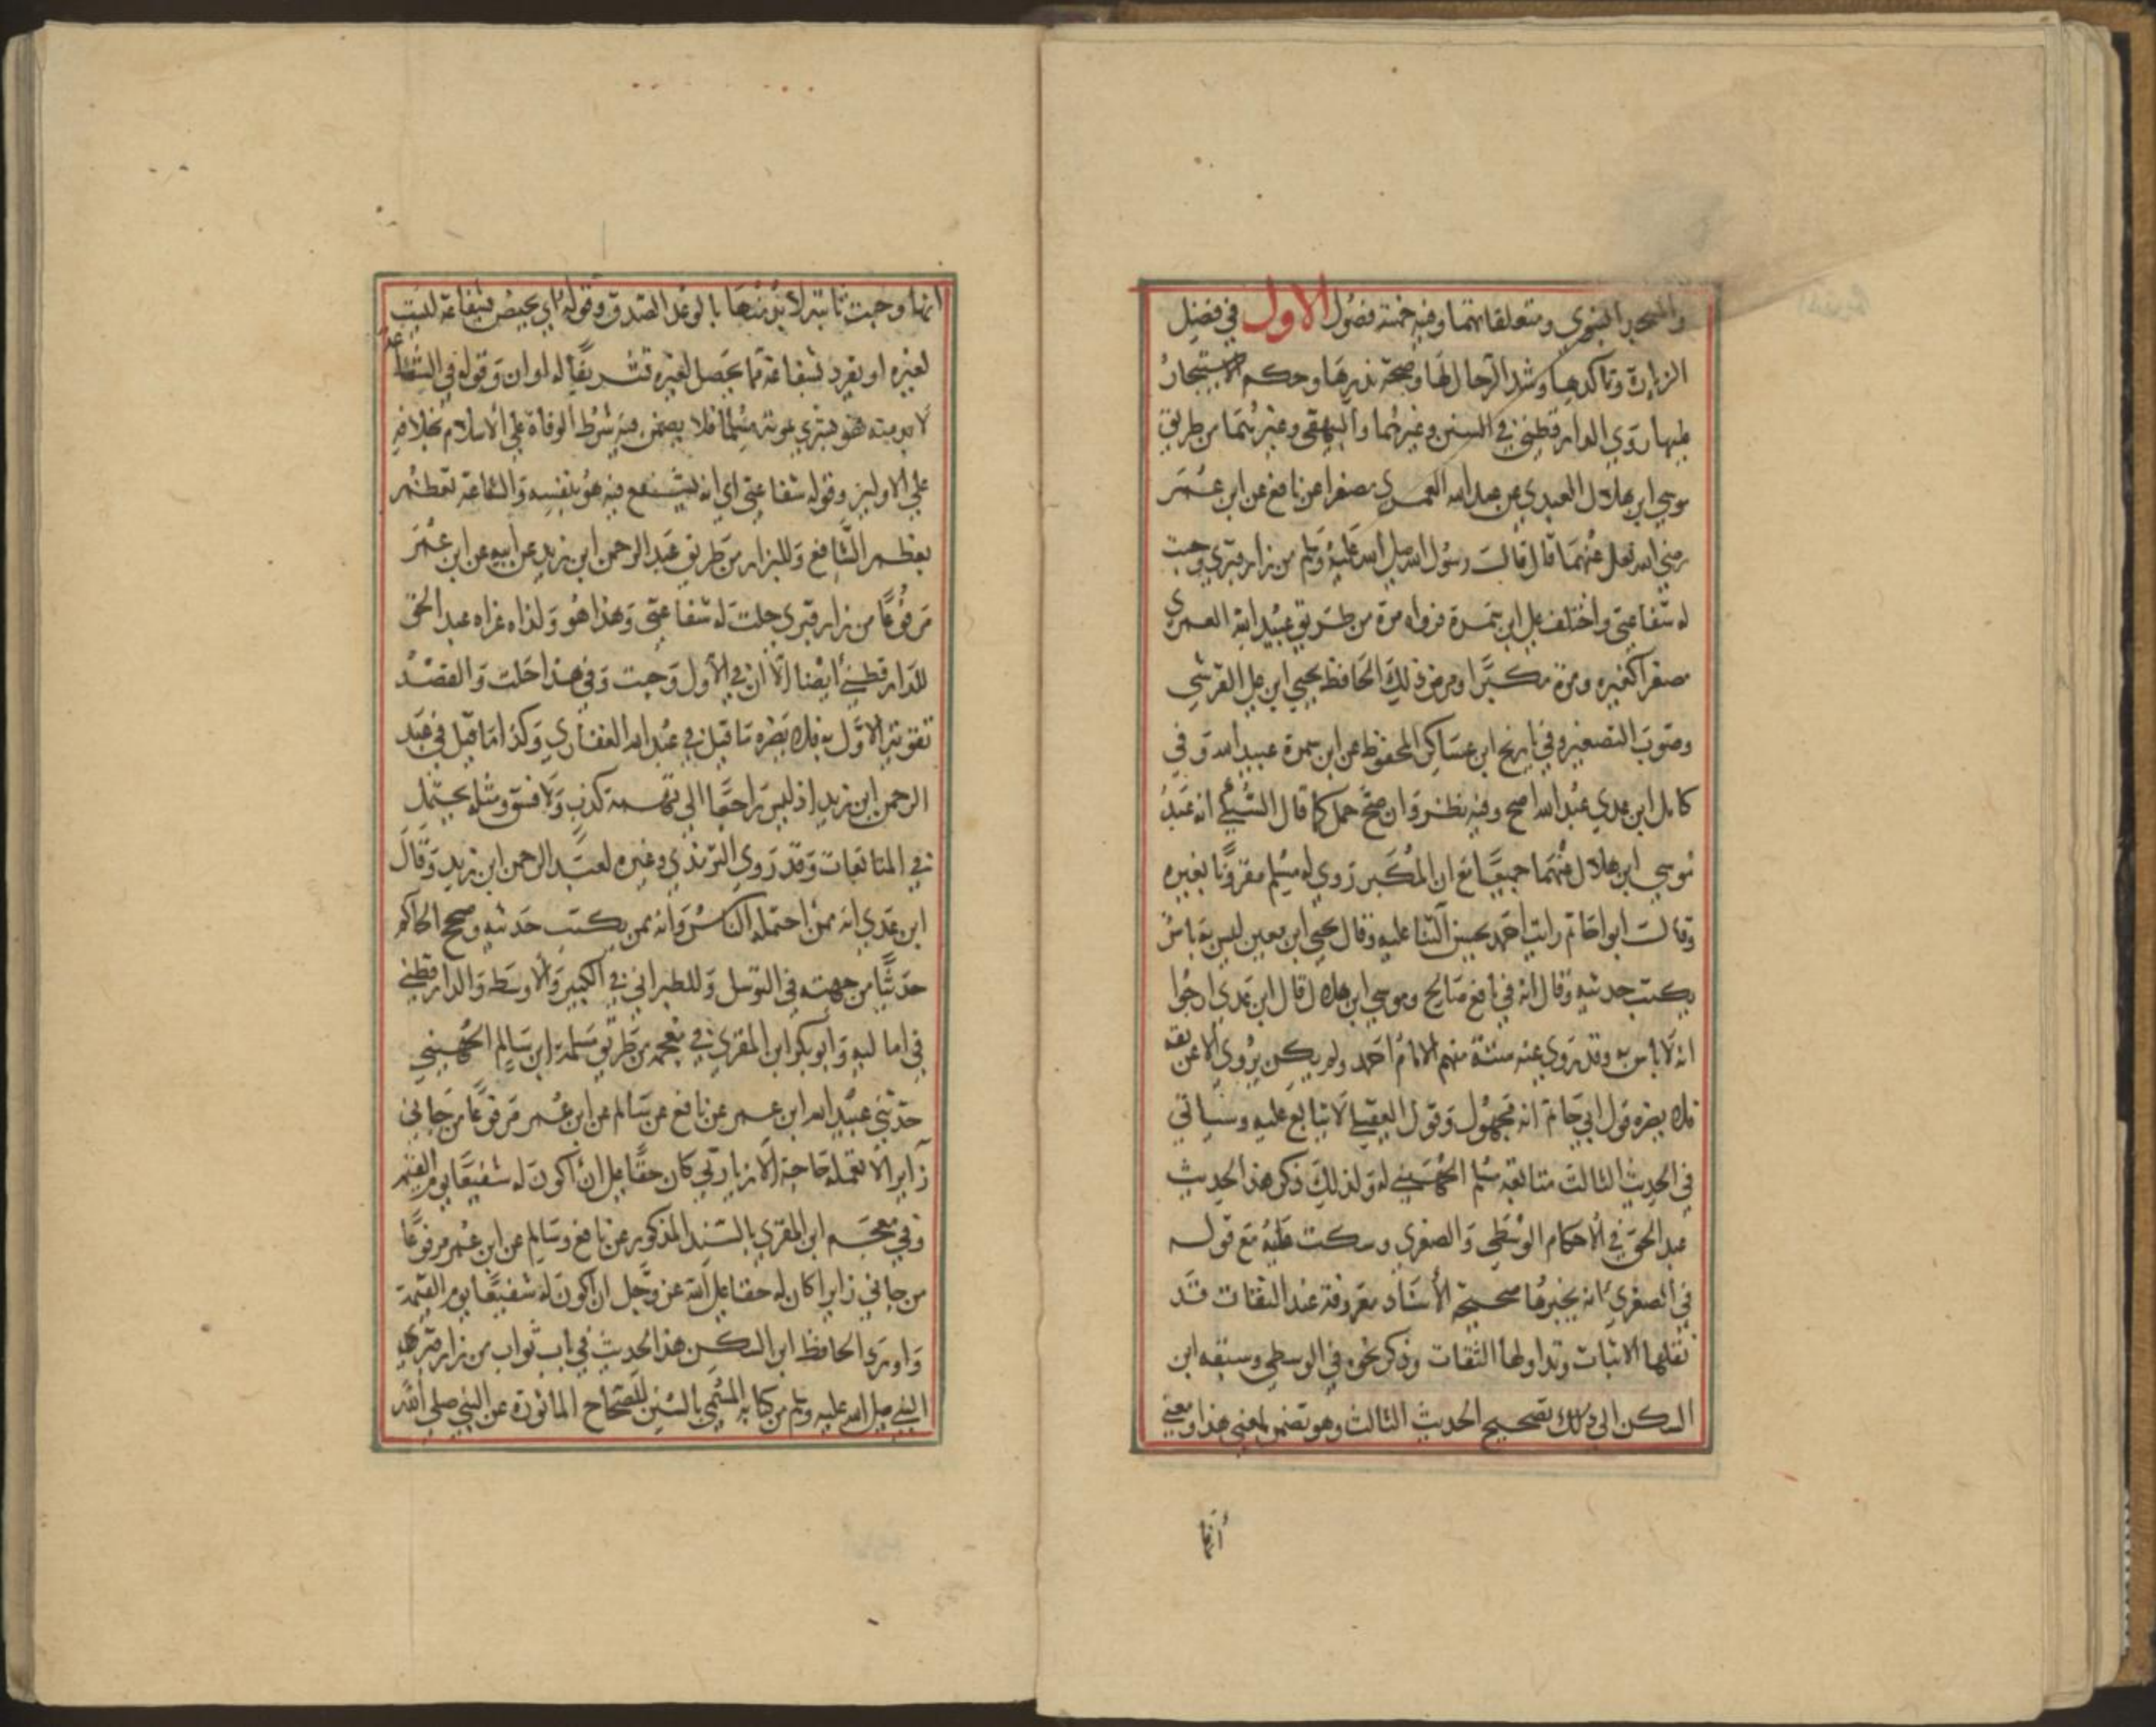 والمسجد النبوي ومتعلقاتهما وفيه خمسة فصول الاول في فضل
الزيارة وتاكدها وشد الرحال لها وصحة نذرها وحكم الاستيجار
عليها روي الدارقطني في السنن وغيرها والبيهقي وغيرهما من طريق
موسي ابن هلال العبدي عن عبد الله العمري مصغرا عن نافع عن ابن عمر
رضي الله تعالى عنهما قال قال رسول الله صلى الله عليه وسلم من زار قبري وجبت
له شفاعتي واختلف على ابن سمرة فرواه مرة من طريق عبيد الله العمري
مصغرا كغيره ومرة مكبرا ومرض ذلك الحافظ يحيي ابن علي القرشي
وصوب التصغير وفي تاريخ ابن عساكر المحفوظ عن ابن سمرة عبيد الله وفي
كامل ابن عدي عبد الله اصح وفيه نظر وان صح حمل كما قال السبكي انه عند
موسي ابن هلال عنهما جميعا مع ان المكبر روي له مسلم مقرونا بغيره
وقال ابو حاتم رايت احمد يحسن الثنا عليه وقال يحيي ابن معين ليس به باس
يكتب حديثه وقال انه في نافع صالح وموسي ابن هلال قال ابن عدي ارجوا
انه لا باس به وقد روي عنه ستة منهم الامام احمد ولم يكن يروي الا عن ثقة
فلا يضره قول ابي حاتم انه مجهول وقول العقيلي لا يتابع عليه وسياتي
في الحديث الثالث متابعة سلم الجهني له ولذلك ذكر هذا الحديث
عبد الحق في الاحكام الوسطي والصغري وسكت عليه مع قوله
في الصغري انه يخيرها صحيحة الاسناد معروفة عند النقات قد
نقلها الاثبات وتداولها الثقات وذكر نحوه في الوسطي وسبقه ابن
السكن الي ذلك تصحيح الحديث الثالث وهو تضمن لمعني هذا ومعني
انها
انها وجبت ثابتة لابد منها بالوعد الصدق وقوله اي يخص بشفاعة ليست
لغيره او يفرد بشفاعة مما يحصل لغيره تشريفا له او ان وقوله في الشفاعة
لا هو ميته فهو بشري بموته مسلما فلا يضمن فيه شرط الوفاة علي الاسلام بخلافه
علي الاولين وقوله شفاعتي اي انه يشفع فيه هو بنفسه والشفاعة تعظم
بعظم الشافع وللبزار من طريق عبد الرحمن ابن زيد عن ابيه عن ابن عمر
مرفوعا من زار قبري حلت له شفاعتي وهذا هو ولذاه عزاه عبد الحق
للدارقطني ايضا الا ان في الاول وجبت وفي هذا حلت والقصد
تقوية الاول به فلا يضره ما قيل في عبد الله الغفاري وكذا ما قيل في عبد
الرحمن ابن زيد اذ ليس راجعا الي تهمة كذب ولا فسق ومثله يحتمل
في المتابعات وقد روي الترمذي وغيره لعبد الرحمن ابن زيد وقال
ابن عدي انه ممن احتمله الناس وانه ممن يكتب حديثه وصحح الحاكم
حديثا من جهته في التوسل وللطبراني في الكبير والاوسط والدارقطني
في اماليه وابو بكر ابن المقري في معجمه من طريق سلمة ابن سالم الجهني
حدثني عبيد الله ابن عمر عن نافع عن سالم عن ابن عمر مرفوعا من جاني
زايرا لا تعمله حاجة الا زيارتي كان حقا على ان اكون له شفيعا يوم القيمة
وفي معجم ابن المقري بالسند المذكور عن نافع وسالم عن ابن عمر مرفوعا
من جاني زايرا كان له حقا على الله عز وجل ان اكون له شفيعا يوم القيمة
واورد الحافظ ابن السكن هذا الحديث في باب ثواب من زار قبر
النبي صلى الله عليه وسلم من كتابه المسمي بالسنن الصحاح الماثورة عن النبي صلى الله